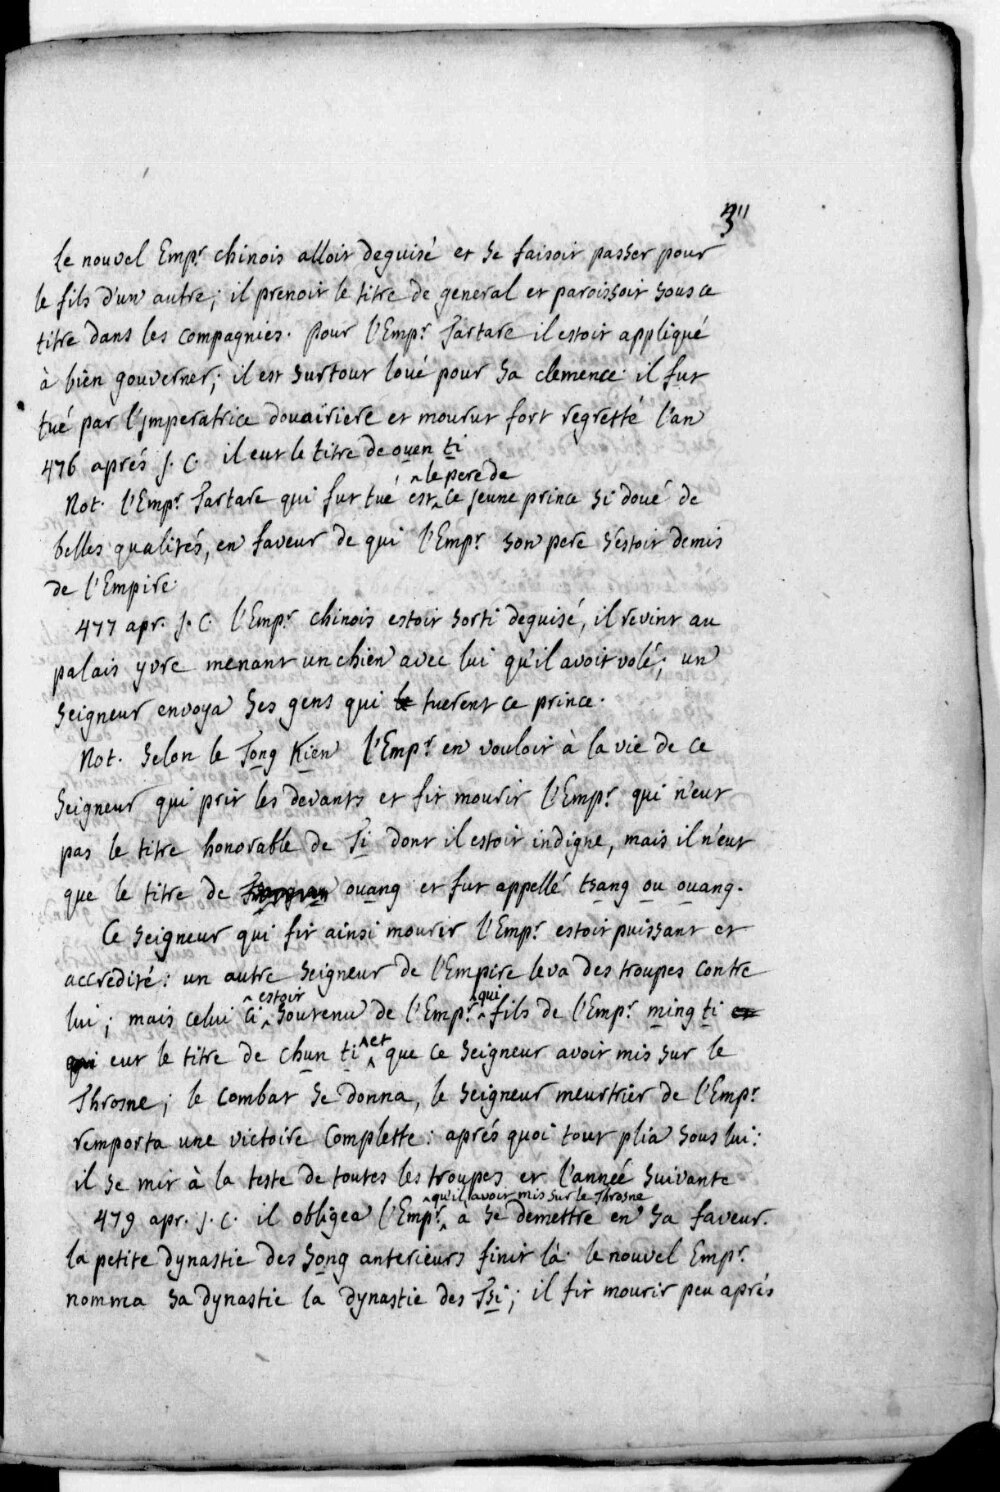 3"
le nouvel Empr chinois alloit deguisé et se faisoit passer pour
le fils d'un autre; il prenoit le titre de general et paroissoit sous ce
titre dans les compagnies. pour l'Empr Tartare il estoit appliqué
à bien gouverner; il est surtout loué pour sa clemence il fut
tué par l'jmperatrice douairiere et mourut fort regretté l'an
476 aprés J. C. il eut le titre de ouen ti
Not. l'Empr Tartare qui fut tué est le pere de ce jeune prince si doué de
belles qualités, en faveur de qui l'Empr son pere s'estoit demis
de l'Empire.
477 apr. J. C. l'Empr chinois estoit sorti deguisé, il revint au
palais yvre menant un chien avec lui qu'il avoit volé; un
seigneur envoya ses gens qui le tuerent ce prince.
Not. selon le Tong Kien l'Empr en vouloit à la vie de ce
seigneur qui prit les devants et fit mourir l'Empr qui n'eut
pas le titre honorable de Ti dont il estoit indigne, mais il n'eut
que le titre de ouang et fut appellé tsang ou ouang.
Ce seigneur qui fit ainsi mourir l'Empr estoit puissant et
accredité: un autre seigneur de l'Empire leva des troupes contre
lui; mais celui ci estoit soutenu de l'Empr qui fils de l'Empr ming ti et
qui eut le titre de chun ti et que ce seigneur avoit mis sur le
Throsne; le combat se donna, le seigneur meurtrier de l'Empr
remporta une victoire complette: aprés quoi tout plia sous lui:
il se mit à la teste de toutes les troupes et l'année suivante
479 apr. J. C. il obligea l'Empr qu'il avoit mis sur le Throsne à se demettre en sa faveur.
la petite dynastie des Song anterieurs finit là. le nouvel Empr
nomma sa dynastie la dynastie des Tsi; il fit mourir peu aprés